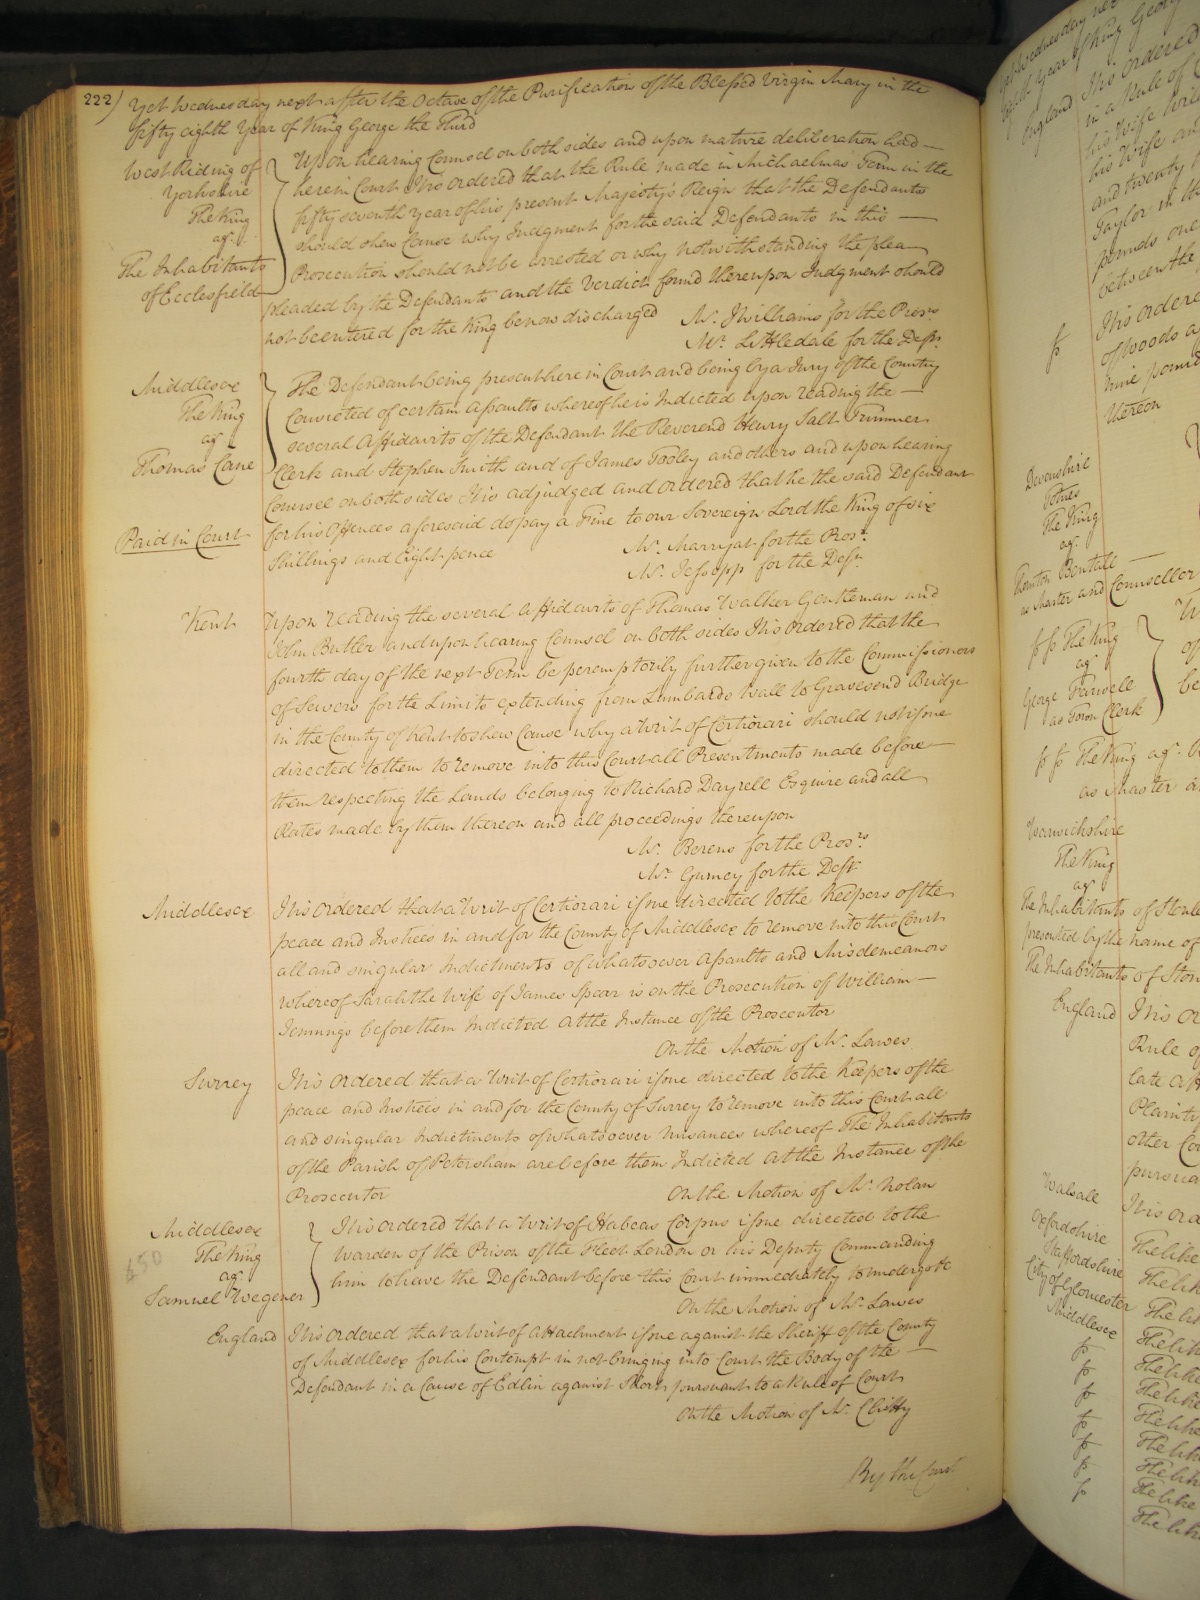 222)
Yet Wednesday next after the Octave of the Purification of the Blessed Virgin Mary in the
fifty eighth Year of King George the Third
West Riding of
Yorkshire
The King
agt.
The Inhabitants
of Ecclesfield
Upon hearing Counsel on both sides and upon mature deliberation had
herein Court It is ordered that the Rule made in Michaelmas Term in the
fifty seventh year of his present Majesty's Reign that the Defendants
should shew Cause why Judgment for the said Defendants in this
Prosecution should not be arrested or why notwithstanding the plea
pleaded by the Defendants and the Verdict found thereupon Judgment should
not be entered for the King be now discharged
Mr. J Williams for the Prosrs
Mr. Littledale for the Defts.
Middlesex
The King
agt
Thomas Cane
Paid in Court
The Defendant being present here in Court and being by a Jury of the Country
Convicted of certain Assaults whereof he is Indicted upon reading the
several Affidavits of the Defendant the Reverend Henry Salt Trimmer
Clerk and Stephen Smith and of James Tooley and others and upon hearing
Counsel on both sides It is adjudged and ordered that he the said Defendant
for his Offences aforesaid do pay a Fine to our Sovereign Lord the King of six
Shillings and Eight pence
Mr. Marryat for the Prosr.
Mr. Jessopp for the Deft.
Kent
Upon reading the several Affidavits of Thomas Walker Gentleman and
John Butler and upon hearing Counsel on both sides It is ordered that the
fourth day of the next Term be peremptorily further given to the Commissioners
of Sewers for the Limits extending from Lombards Wall to Gravesend Bridge
in the County of Kent to shew Cause why a Writ of Certiorari should not issue
directed to them to remove into this Court all Presentments made before
them respecting the Lands belonging to Richard Dayrell Esquire and all
Rates made by them thereon and all proceedings thereupon
Mr. Berens for the Prosrs
Mr. Gurney for the Deft
Middlesex
It is ordered that a Writ of Certiorari issue directed to the Keepers of the
peace and Justices in and for the County of Middlesex to remove into this Court
all and singular Indictments of whatsoever Assaults and Misdemeanors
whereof Sarah the Wife of James Spear is on the Prosecution of William
Jennings before them Indicted At the Instance of the Prosecutor
On the Motion of Mr. Lawes
Surrey
It is ordered that a Writ of Certiorari issue directed to the Keepers of the
peace and Justices in and for the County of Surrey to remove into this Court all
and singular Indictments of whatsoever Nusances whereof The Inhabitants
of the Parish of Petersham are before them Indicted At the Instance of the
Prosecutor
On the Motion of Mr. Nolan
Middlesex
The King
agt
Samuel Wegener
450
It is ordered that a Writ of Habeas Corpus issue directed to the
Warden of the Prison of the Fleet London or his Deputy Commanding
him to have the Defendant before this Court immediately to undergo &c
On the Motion of Mr. Lawes
England
It is ordered that a writ of Attachment issue against the Sheriff of the County
of Middlesex for his Contempt in not bringing into Court the Body of the
Defendant in a Cause of Edlin against Short pursuant to a Rule of Court
On the Motion of Mr. Chitty
By the Court
England
It is ordered
in a Rule of
his Wife
his Wife and
and twenty
Taylor in the
pounds one
between the
It is ordered
of woods
nine pounds
thereon
Devonshire
Totnes
The King
agt.
Thornton Bentall
as Master and Counsellor
The King
agt
George Farwell
as Town Clerk
The King agt.
as Master
Warwickshire
The King
agt
The Inhabitants of
presented by the name of
The Inhabitants of
England
It is
Rule of
late
Plaintiff
other
Walsall
It is
Oxfordshire
The like
Staffordshire
The like
City of Gloucester
The like
Middlesex
The like
The like
The like
The like
The like
The like
The like
The like